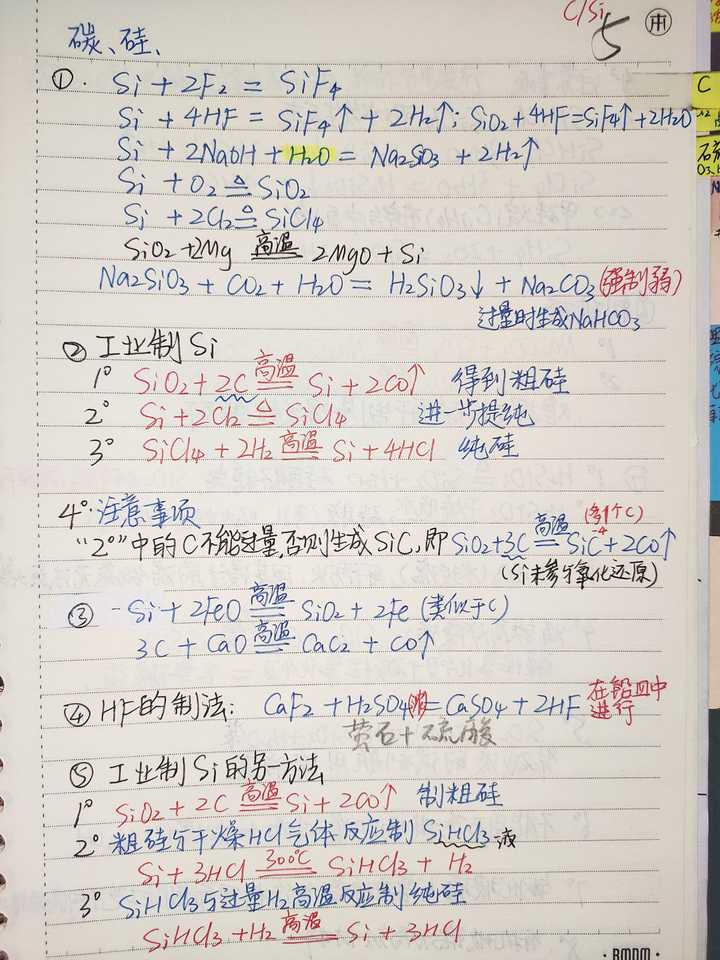 C/Si
5
本
碳、硅、
①. Si + 2F₂ = SiF₄
Si + 4HF = SiF₄↑ + 2H₂↑; SiO₂ + 4HF = SiF₄↑ + 2H₂O
Si + 2NaOH + H₂O = Na₂SiO₃ + 2H₂↑
Si + O₂ ≜ SiO₂
Si + 2Cl₂ ≜ SiCl₄
SiO₂ + 2Mg 高温 2MgO + Si
Na₂SiO₃ + CO₂ + H₂O = H₂SiO₃↓ + Na₂CO₃ (强制弱)
过量时生成NaHCO₃
② 工业制Si
1° SiO₂ + 2C 高温 Si + 2CO↑ 得到粗硅
2° Si + 2Cl₂ ≜ SiCl₄ 进一步提纯
3° SiCl₄ + 2H₂ 高温 Si + 4HCl 纯硅
4°.注意事项
"2°"中的C不能过量,否则生成SiC,即SiO₂+3C 高温 SiC + 2CO↑ (多1个C) -4
(Si未参与氧化还原)
③ Si + 2FeO 高温 SiO₂ + 2Fe (类似于C)
3C + CaO 高温 CaC₂ + CO↑
④ HF的制法: CaF₂ + H₂SO₄(浓) = CaSO₄ + 2HF 在铅皿中进行
萤石+硫酸
⑤ 工业制Si的另一方法
1° SiO₂ + 2C 高温 Si + 2CO↑ 制粗硅
2° 粗硅与干燥HCl气体反应制SiHCl₃ 液
Si + 3HCl 300℃ SiHCl₃ + H₂
3° SiHCl₃与过量H₂高温反应制纯硅
SiHCl₃ + H₂ 高温 Si + 3HCl